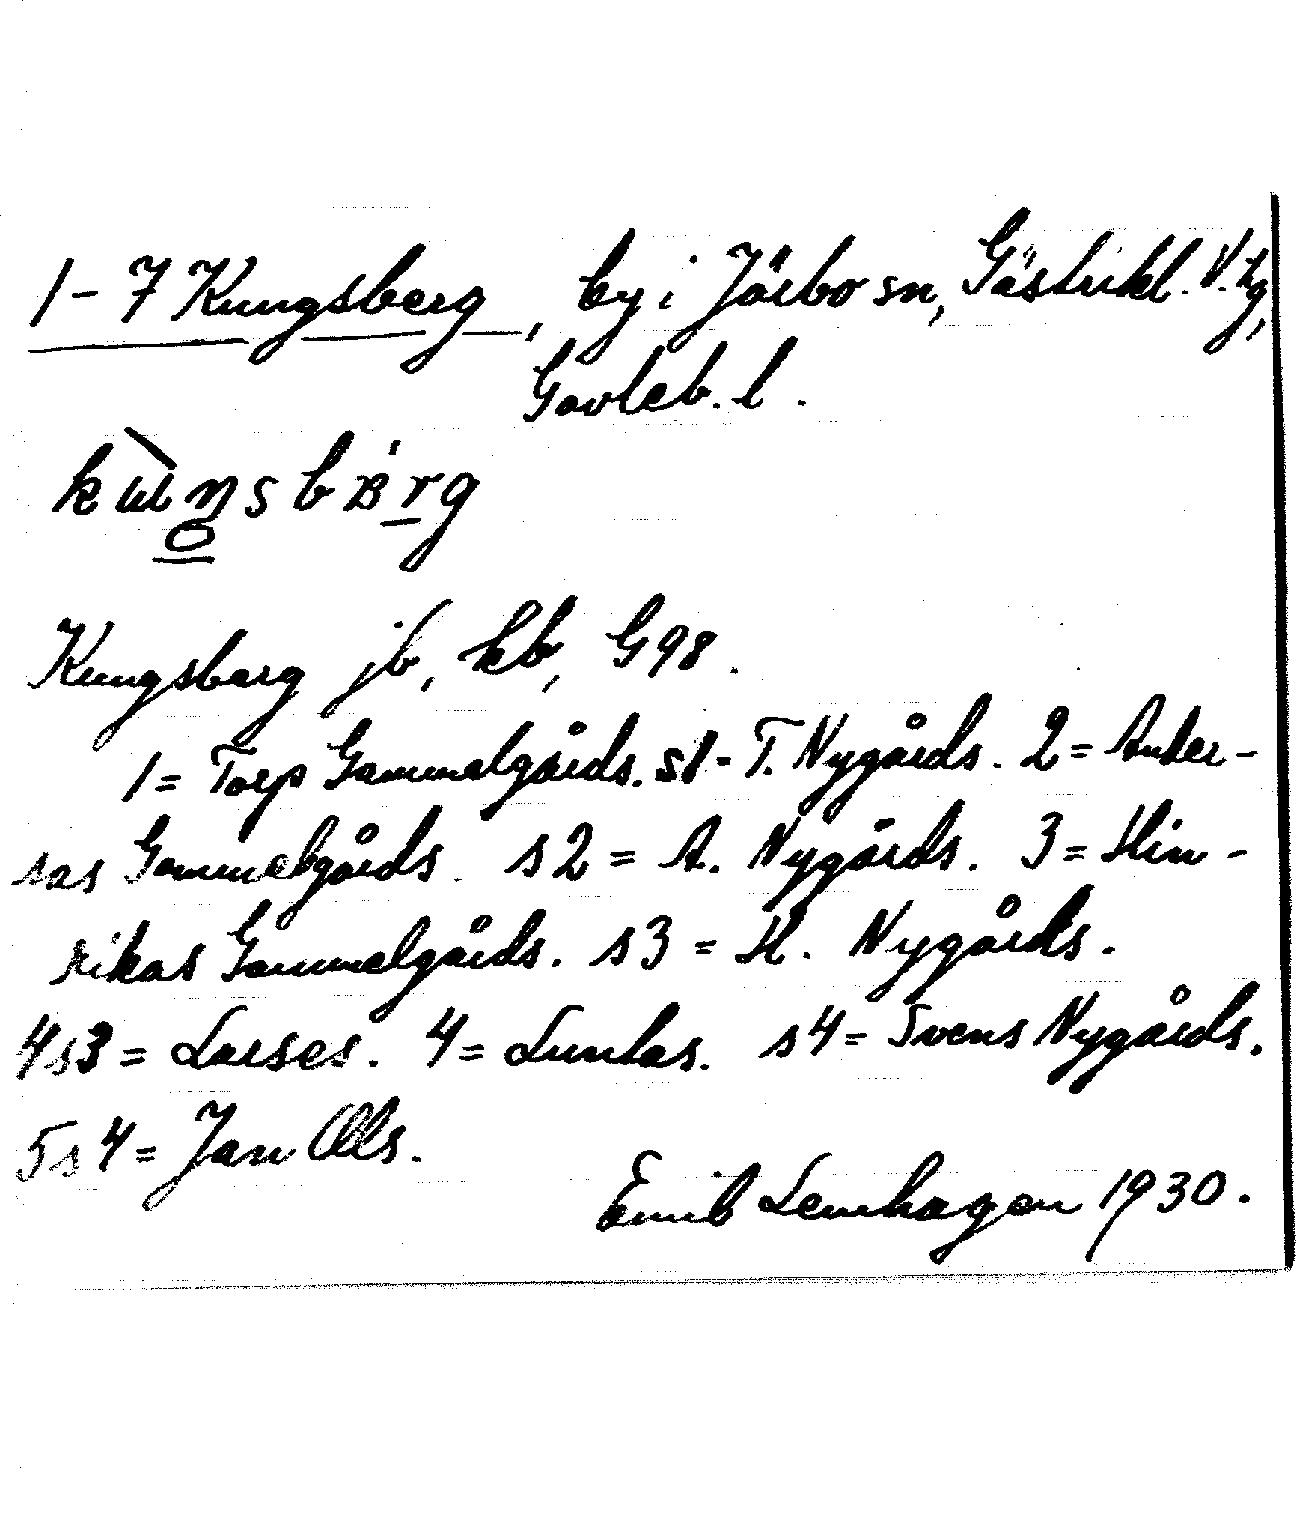 1-7 Kungsberg, by i Järbo sn, Gästrikl. V. tg,
Gävleb. l.
Kungsberg jb, kb, G98.
1= Torp Gammelgårds. s1 - T. Nygårds. 2= Ander-
sas Gammelgårds. s2 = A. Nygårds. 3= Hin-
rikas Gammelgårds. s3 = H. Nygårds.
4s3 = Larses. 4= Luntas. s4= Svens Nygårds.
5s4= Jan Ols.
Emil Lenhagen 1930.